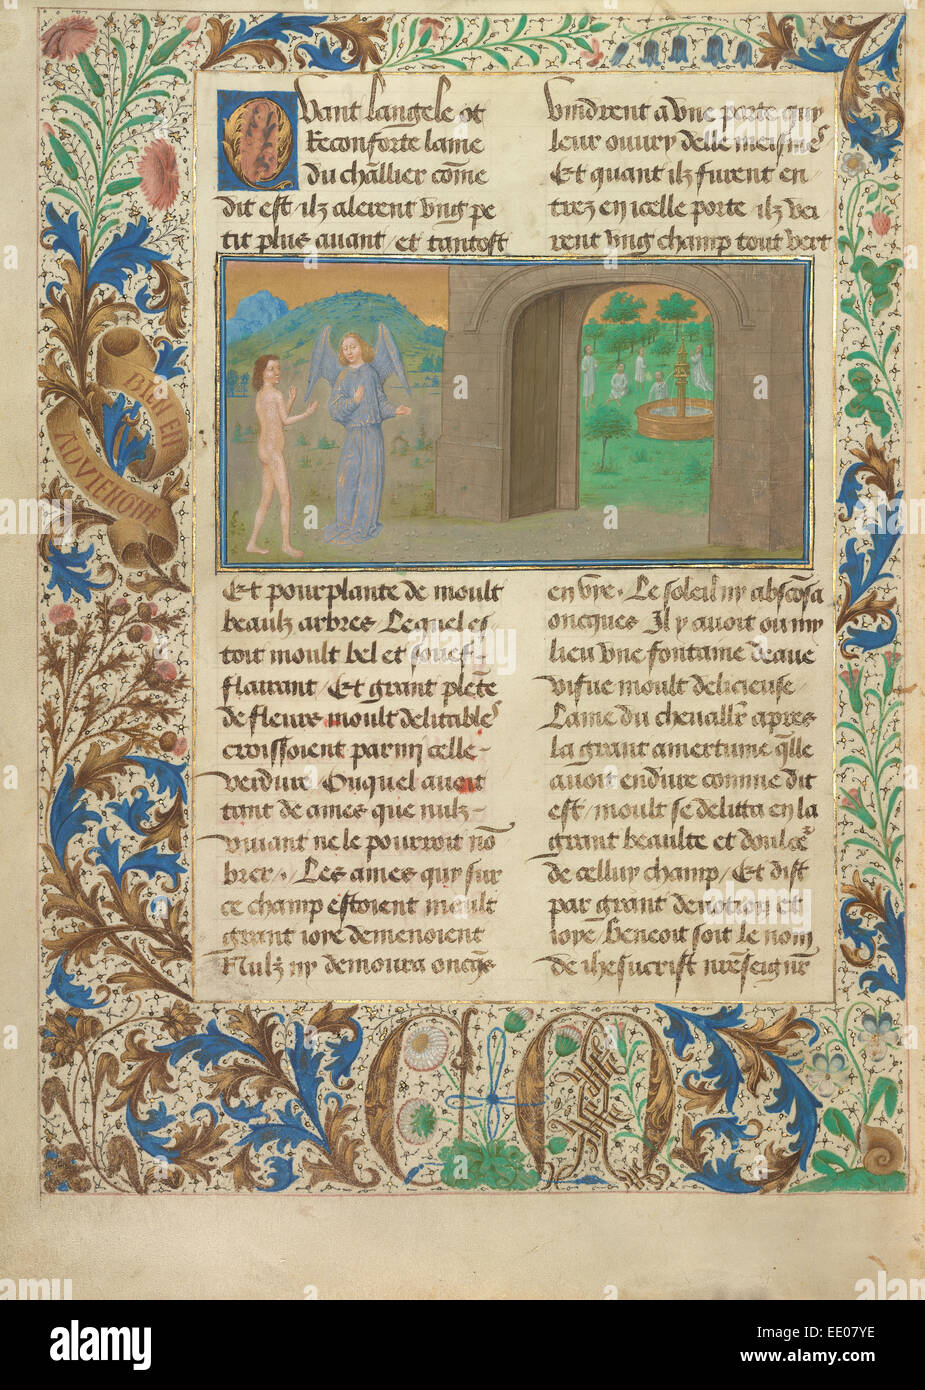 Quant langele ot
Reconforte lame
du chl̄lier com̄e
dit est / ilz alerent vng pe
tit plus auant / et tantost
vindrent a vne porte quy
leur ouury delle meisme᷒
Et quant ilz furent en
trez en icelle porte ilz vei
rent vng champ tout vert
Et pourplante de moult
beaulz arbres Lequel es-
toit moult bel et souef-
flairant / Et grant plēte
de fleurs moult delitable᷒
croissoient parmi celle-
verdure . Ouquel auoit
tant de ames que nulz-
viuant ne le pourroit nō
brer . Les ames quy sur
ce champ estoient moult
grant ioye demenoient
Nulz ny demoura oncq̄s
en vye . Le soleil ny abscōsa
oncques Il y auoit ou my
lieu vne fontaine deaue
vifue moult delicieuse
Lame du cheuallr̄ apres
la grant amertume q̄lle
auoit endure comme dit
est / moult se delitta en la
grant beaulte et doulce᷒
de celluy champ / Et dist
par grant deuotion et
ioye / Benoit soit le nom
de ihesucrist nr̄e seignr̄
BIEN EN
AVIENGNE
CM
alamy
Image ID: EE07YE
www.alamy.com